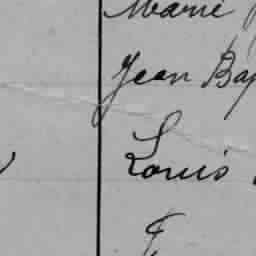 Marie
Jean Bap
Louis